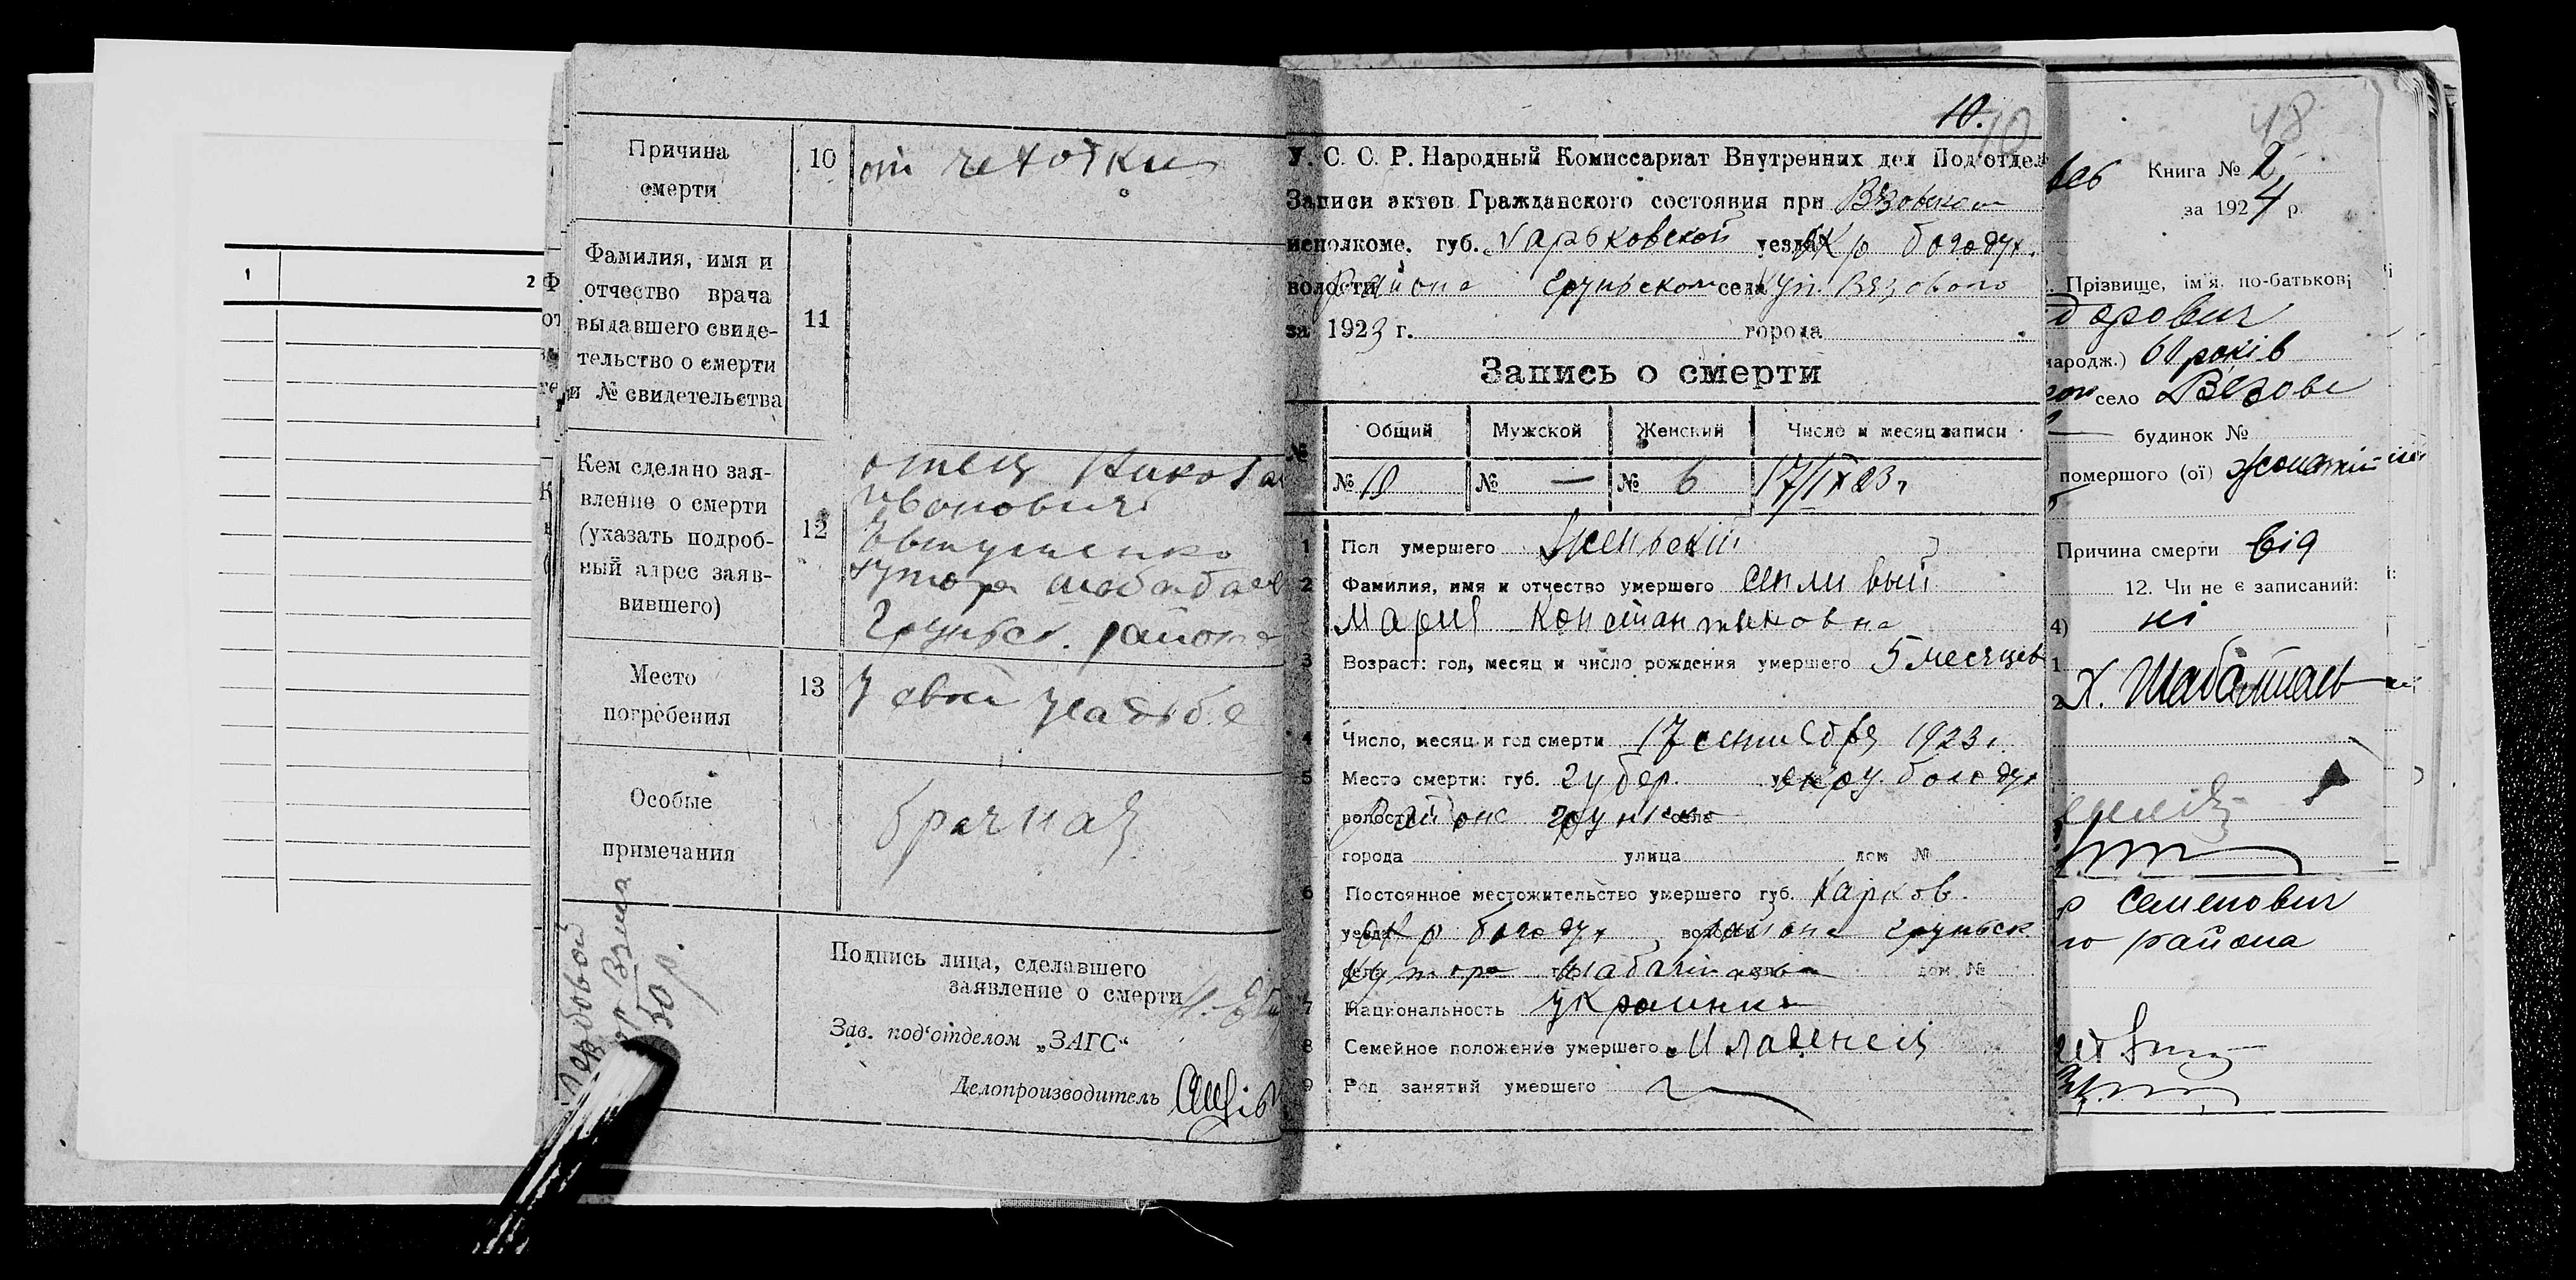 1
2
Причина
смерти
10
от чехотки
Фамилия, имя и
отчество врача
выдавшего свиде-
тельство о смерти
и № свидетельства
11
Кем сделано зая-
вление о смерти
(указать подроб-
ный адрес заяв-
вившего)
12
отец Никола
Ивонович
Евтушенко
хутора
Груньск. района
Место
погребения
13
У своей усадьбе
Особые
примечания
брачная
Гербовой
50 р.
Подпись лица, сделавшего
заявление о смерти
Зав. под‘отделом „ЗАГС“
Делопроизводитель
10.
10
У. С. С. Р. Народный Комиссариат Внутренних дел Под‘отдел
Записи актов Гражданского состояния при Вязовском
исполкоме. губ. Харьковской уезда Окр богодух.
волости района Груньском села хут. Вязового
за 1923 г. города
Запись о смерти
№ Общий Мужской Женский Число и месяц записи
№ 10 № — № 6 17/IX 23 г
1 Пол умершего Женьский
2 Фамилия, имя и отчество умершего
Мария Константиновна
3 Возраст: год, месяц и число рождения умершего 5 месяцев
4 Число, месяц и год смерти 17 сентября 1923 г.
5 Место смерти: губ. губер. окру. богодух
волости района грунско
города улица дом №
6 Постоянное местожительство умершего губ. Харков.
уезда окр богодух волости района груньск
села хутора дом №
7 Национальность украинка
8 Семейное положение умершего Младенец
9 Род занятий умершего
48
Книга № 2
за 1924 р.
Прізвище, ім‘я, по-батькові
дорович
народж.) 60 років
село Вязове
— будинок №
помершого (ої)
Причина смерти від
12. Чи не є записаний:
4) ні
1
2 Х.
Семенович
го района